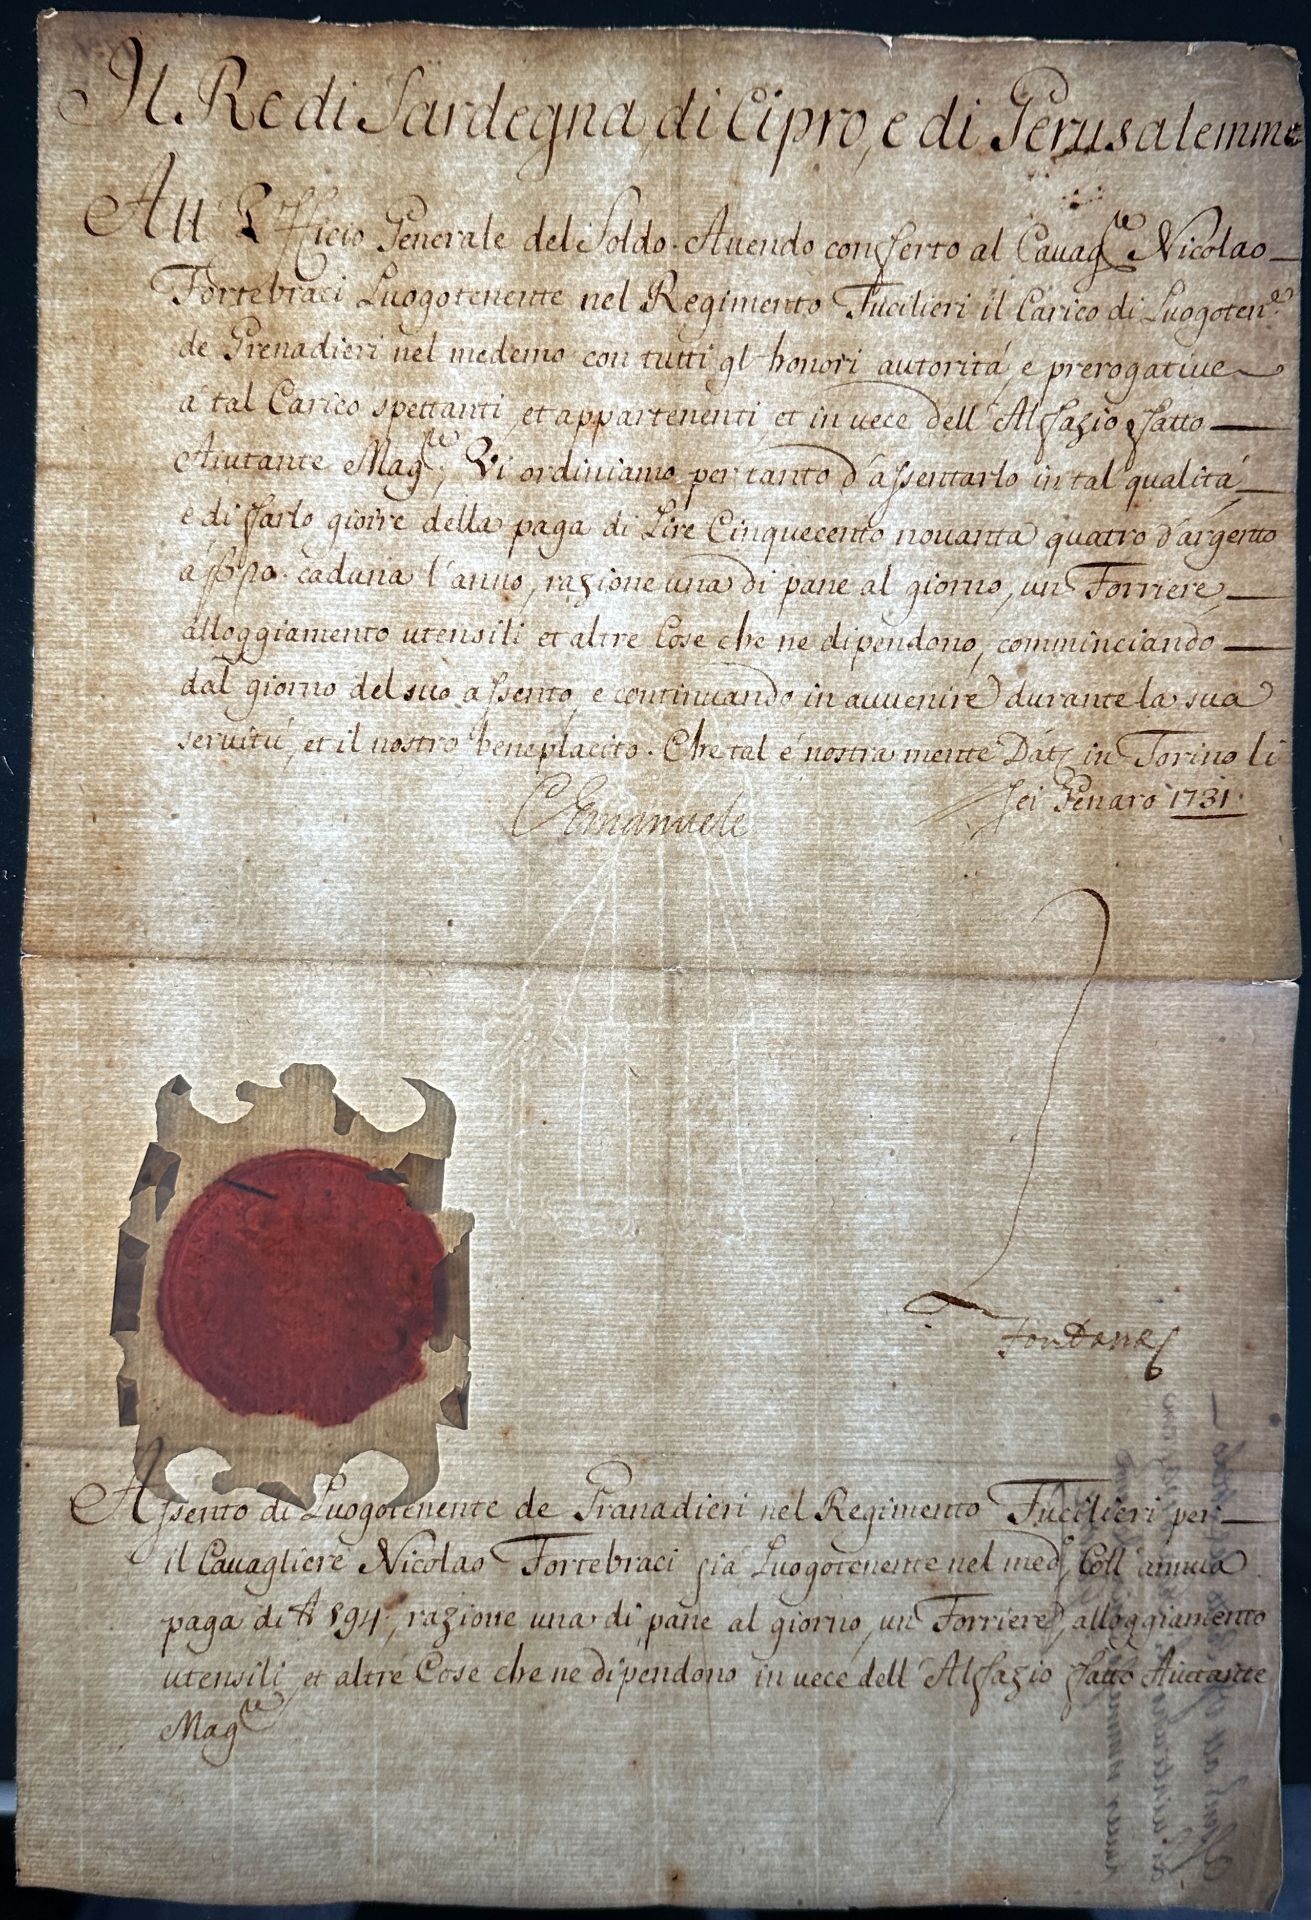 Il Re di Sardegna, di Cipro, e di Gerusalemme
All' Ufficio Generale del Soldo. Avendo conferto al Cavag.re Nicolao
Fortebraci Luogotenente nel Regimento Fucilieri il Carico di Luogoten.e
de Grenadieri nel medemo con tutti gl' honori autorità, e prerogative
à tal Carico spettanti, et appartenenti, et in vece dell' Alfazio fatto
Aiutante Mag.re; Vi ordiniamo per tanto d'assentarlo in tal qualità
e di farlo gioire della paga di Lire Cinquecento novanta quatro d'argento
caduna l'anno, razione una di pane al giorno, un Forriere,
alloggiamento utensili et altre Cose che ne dipendono, comminciando
dal giorno del suo assento, e continuando in avvenire durante la sua
servitù, et il nostro beneplacito. Che tal è nostra mente Dat. in Torino li
sei Genaro 1731.
C Emanuele
Fontana
Assento di Luogotenente de Granadieri nel Regimento Fucilieri per
il Cavagliere Nicolao Fortebraci già Luogotenente nel med.° Coll' annua
paga di # 594, razione una di pane al giorno, un Forriere, alloggiamento
utensili, et altre Cose che ne dipendono in vece dell' Alfazio fatto Aiutante
Mag.re